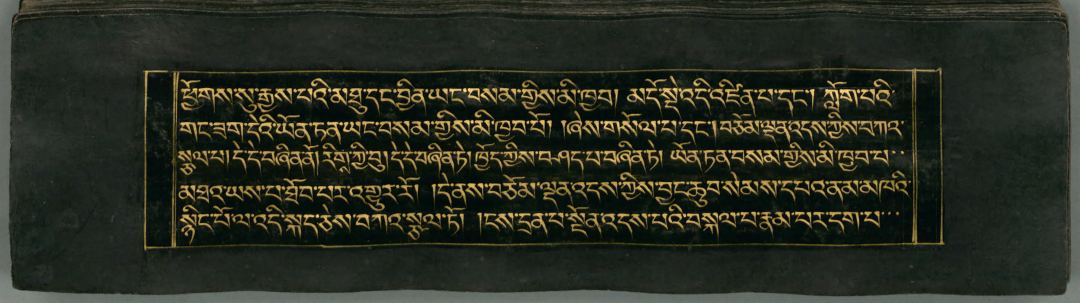 ཕྱོགས་སུ་རྒྱས་པའི་མཐུ་དང་བྱིན་ཡང་བསམ་གྱིས་མི་ཁྱབ། མདོ་སྡེ་འདི་འཛིན་པ་དང་། ཀློག་པའི་
གང་ཟག་དེའི་ཡོན་ཏན་ཡང་བསམ་གྱིས་མི་ཁྱབ་པོ། །ཞེས་གསོལ་པ་དང་། བཅོམ་ལྡན་འདས་ཀྱིས་བཀའ་
སྩལ་པ། དེ་དེ་བཞིན་ནོ། རིགྀ་ཀྱི་བུ། དེ་དེ་བཞིན་ཏེ། ཁྱོད་ཀྱིས་བཤད་པ་བཞིན་ཏེ། ཡོན་ཏན་བསམ་གྱིས་མི་ཁྱབ་པ་
མཐའ་ཡས་པ་ཐོབ་པར་འགྱུར་རོ། །དེ་ནས་བཅོམ་ལྡན་འདས་ཀྱིས་བྱང་ཆུབ་སེམས་དཔའ་ནམ་མཁའི་
སྙིང་པོ་ལ་འདི་སྐད་ཅེས་བཀའ་སྩལ་ཏོ། །ངས་དྲན་པ་སྔོན་འདས་པའི་བསྐལ་པ་རྣམ་པར་དག་པ་